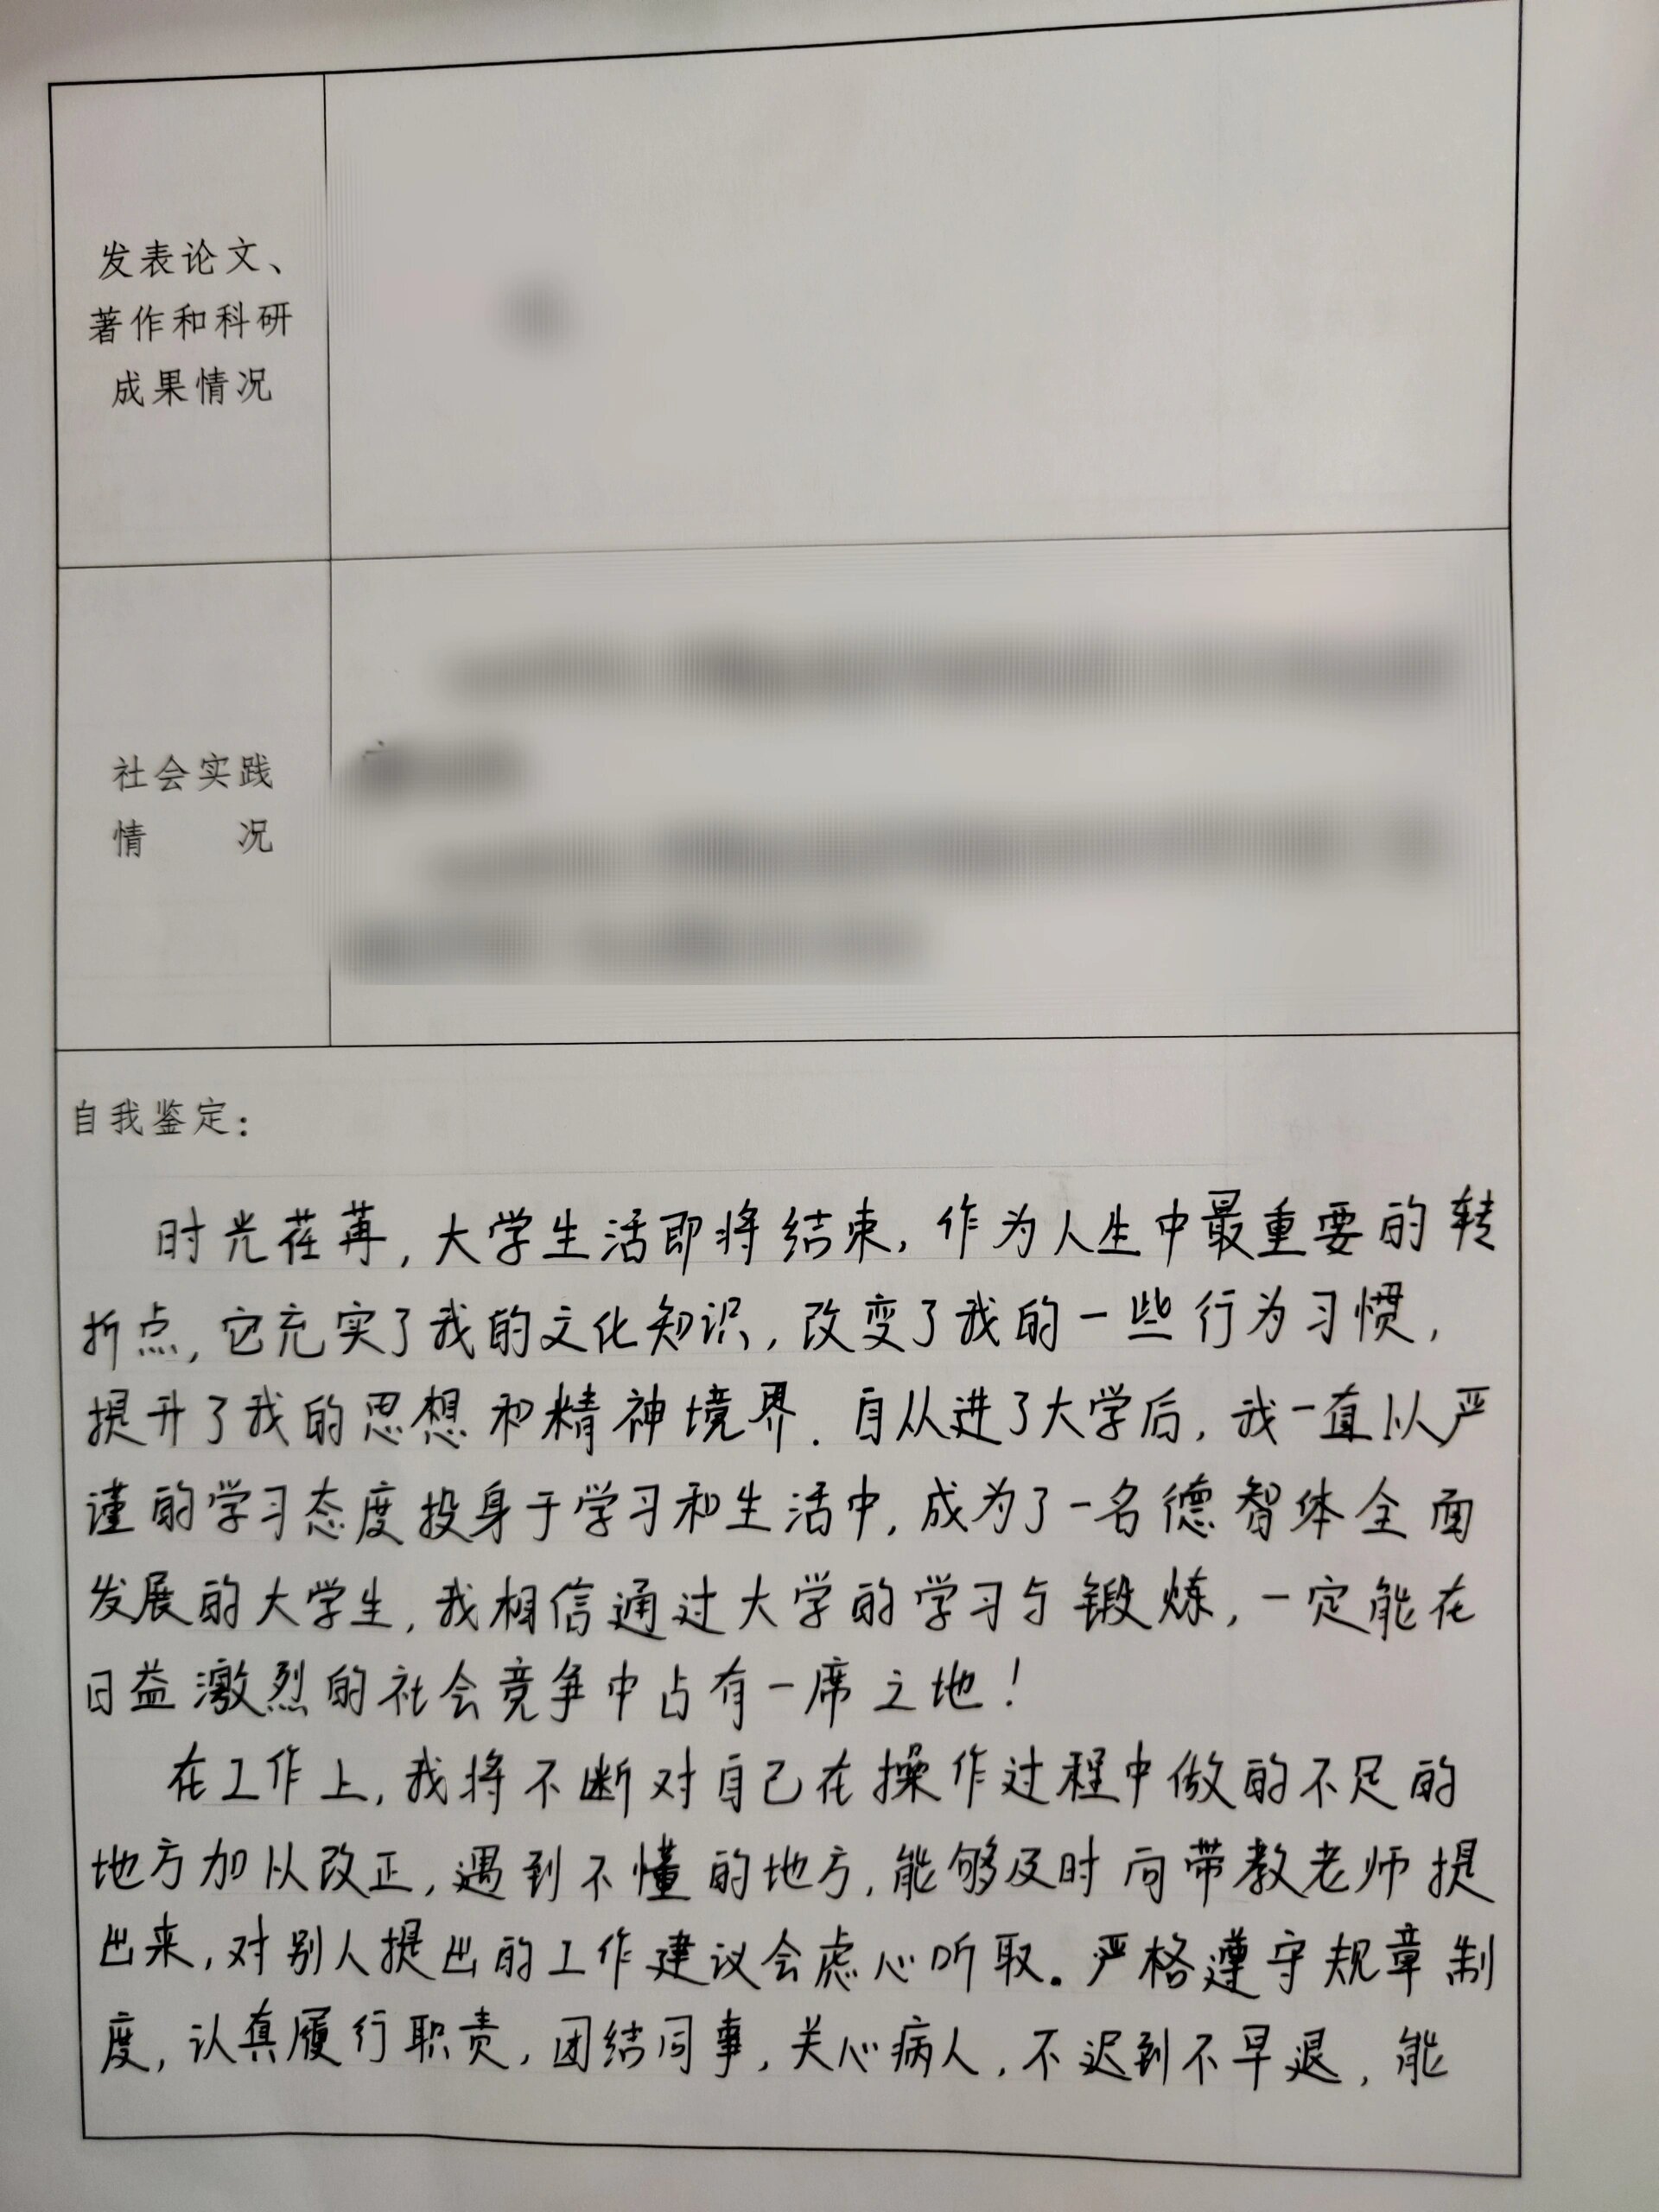 发表论文、
著作和科研
成果情况
社会实践
情 况
自我鉴定：
时光荏苒，大学生活即将结束，作为人生中最重要的转
折点，它充实了我的文化知识，改变了我的一些行为习惯，
提升了我的思想和精神境界．自从进了大学后，我一直以严
谨的学习态度投身于学习和生活中，成为了一名德智体全面
发展的大学生，我相信通过大学的学习与锻炼，一定能在
日益激烈的社会竞争中占有一席之地！
在工作上，我将不断对自己在操作过程中做的不足的
地方加以改正，遇到不懂的地方，能够及时向带教老师提
出来，对别人提出的工作建议会虑心听取。严格遵守规章制
度，认真履行职责，团结同事，关心病人，不迟到不早退，能